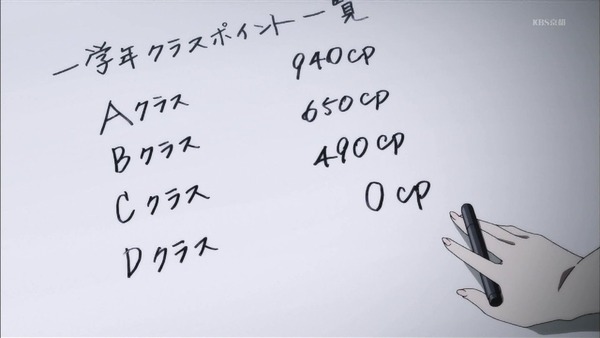 KBS京都
一学年クラスポイント一覧
Aクラス 940cp
Bクラス 650cp
Cクラス 490cp
Dクラス 0cp